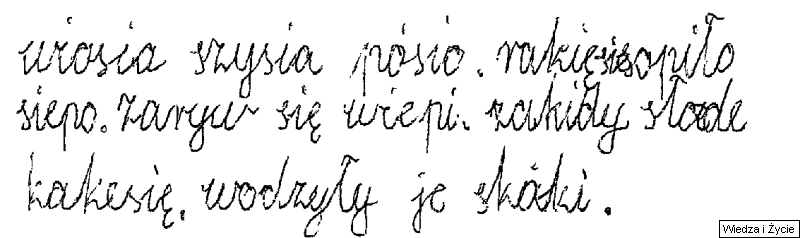 wiosia szysia pósio. rakięsisopiło
siepo. Zaryw się wiepi. zakidły słode
kakesię. wodzyły je skóki.
Wiedza i Życie